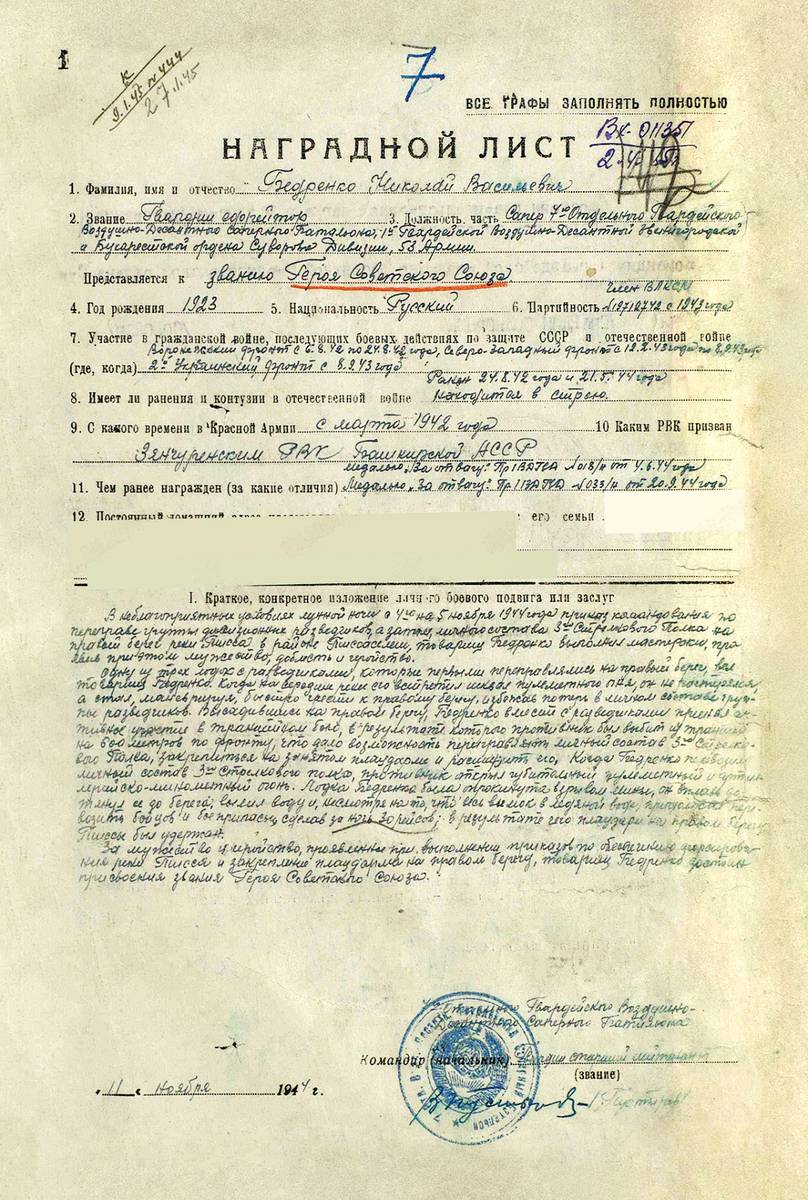 1
К
9.1.45 № 444
27.1.45
7
ВСЕ ГРАФЫ ЗАПОЛНЯТЬ ПОЛНОСТЬЮ
НАГРАДНОЙ ЛИСТ
ВК-011351
1. Фамилия, имя и отчество Бедренко Николай Васильевич
2. Звание Гвардии ефрейтор 3. Должность, часть Сапер 7го Отдельного Гвардейского
Воздушно-Десантного Саперного Батальона, 1й Гвардейской Воздушно-Десантной Звенигородской
и Бухарестской ордена Суворова Дивизии, 53 Армии.
Представляется к званию Героя Советского Союза
член ВЛКСМ
4. Год рождения 1923 5. Национальность Русский 6. Партийность №19712742 с 1943 года
7. Участие в гражданской войне, последующих боевых действиях по защите СССР и отечественной войне
Воронежский фронт с 6.8.42 по 24.8.42 года, Северо-западный фронт с 12.2.43 года по 8.9.43 года
(где, когда) 2й Украинский фронт с 8.9.43 года
Ранен 24.8.42 года и 21.5.44 года
8. Имеет ли ранения и контузии в отечественной войне находится в строю.
9. С какого времени в Красной Армии с марта 1942 года 10 Каким РВК призван
Зянчуринским РВК Башкирской АССР
Медалью „За отвагу" Пр 1ВАТКА №018/н от 4.6.44 года
11. Чем ранее награжден (за какие отличия) Медалью „За отвагу" Пр 1ГВАТКА №033/н от 20.9.44 года
12. Постоянный домашний адрес его семьи
I. Краткое, конкретное изложение личного боевого подвига или заслуг
В неблагоприятных условиях лунной ночи с 4го на 5 ноября 1944 года приказ командования по
переправе группы дивизионных разведчиков, а затем личного состава 3го Стрелкового Полка на
правый берег реки Тисса в районе Тисасели, товарищ Бедренко выполнил мастерски, про-
явив при этом мужество, доблесть и геройство.
Одну из трех лодок с разведчиками, которые первыми переправлялись на правый берег, вел
товарищ Бедренко. Когда на середине реки его встретил шквал пулеметного огня, он не растерялся,
а стал, маневрируя, быстро грести к правому берегу, избежав потерь в личном составе груп-
пы разведчиков. Высадившись на правом берегу, Бедренко вместе с разведчиками принял ак-
тивное участие в траншейном бою, в результате которого противник был выбит из траншей
на 600 метров по фронту, что дало возможность переправлять личный состав 3го Стрелко-
вого Полка, закрепиться на занятом плацдарме и расширить его. Когда Бедренко перевозил
личный состав 3го Стрелкового полка, противник открыл губительный пулеметный и артил-
лерийско-минометный огонь. Лодка Бедренко была опрокинута взрывом мины, он вплавь до-
тянул ее до берега, вылил воду и, несмотря на то, что весь вымок в ледяной воде, продолжал пере-
возить бойцов и боеприпасы, сделав за ночь 30 рейсов; в результате чего плацдарм на правом берегу
Тиссы был удержан.
За мужество и геройство, проявленные при выполнении приказов по обеспечению форсирова-
ния реки Тисса и закрепление плацдарма на правом берегу, товарищ Бедренко достоин
присвоения звания Героя Советского Союза.
Отдельного Гвардейского Воздушно-
Десантного Саперного Батальона
Командир (начальник) гвардии старший лейтенант
(звание)
„11" ноября 1944 г.